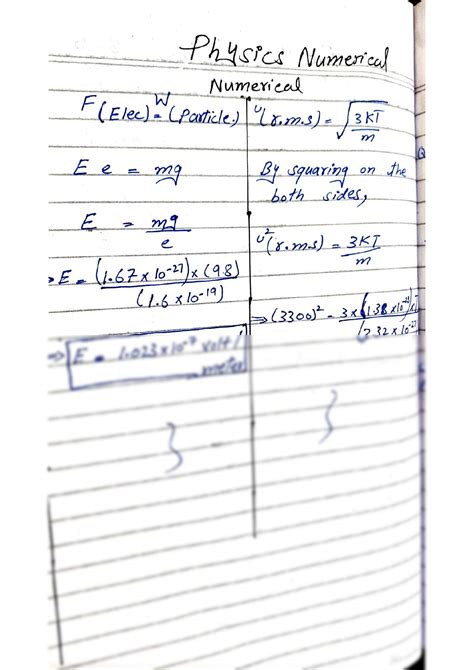 Physics Numerical
Numerical
F(Elec) = W(Particle)
E e = mg
E = mg/e
E = (1.67 x 10-27) x (9.8) / (1.6 x 10-19)
⇒ E = 1.023 x 10-7 volt/
meter
u(r.m.s) = √3KT/m
By squaring on the
both sides,
u2(r.m.s) = 3KT/m
⇒ (3300)2 = 3 x (1.38 x 10
3.32 x 10-27